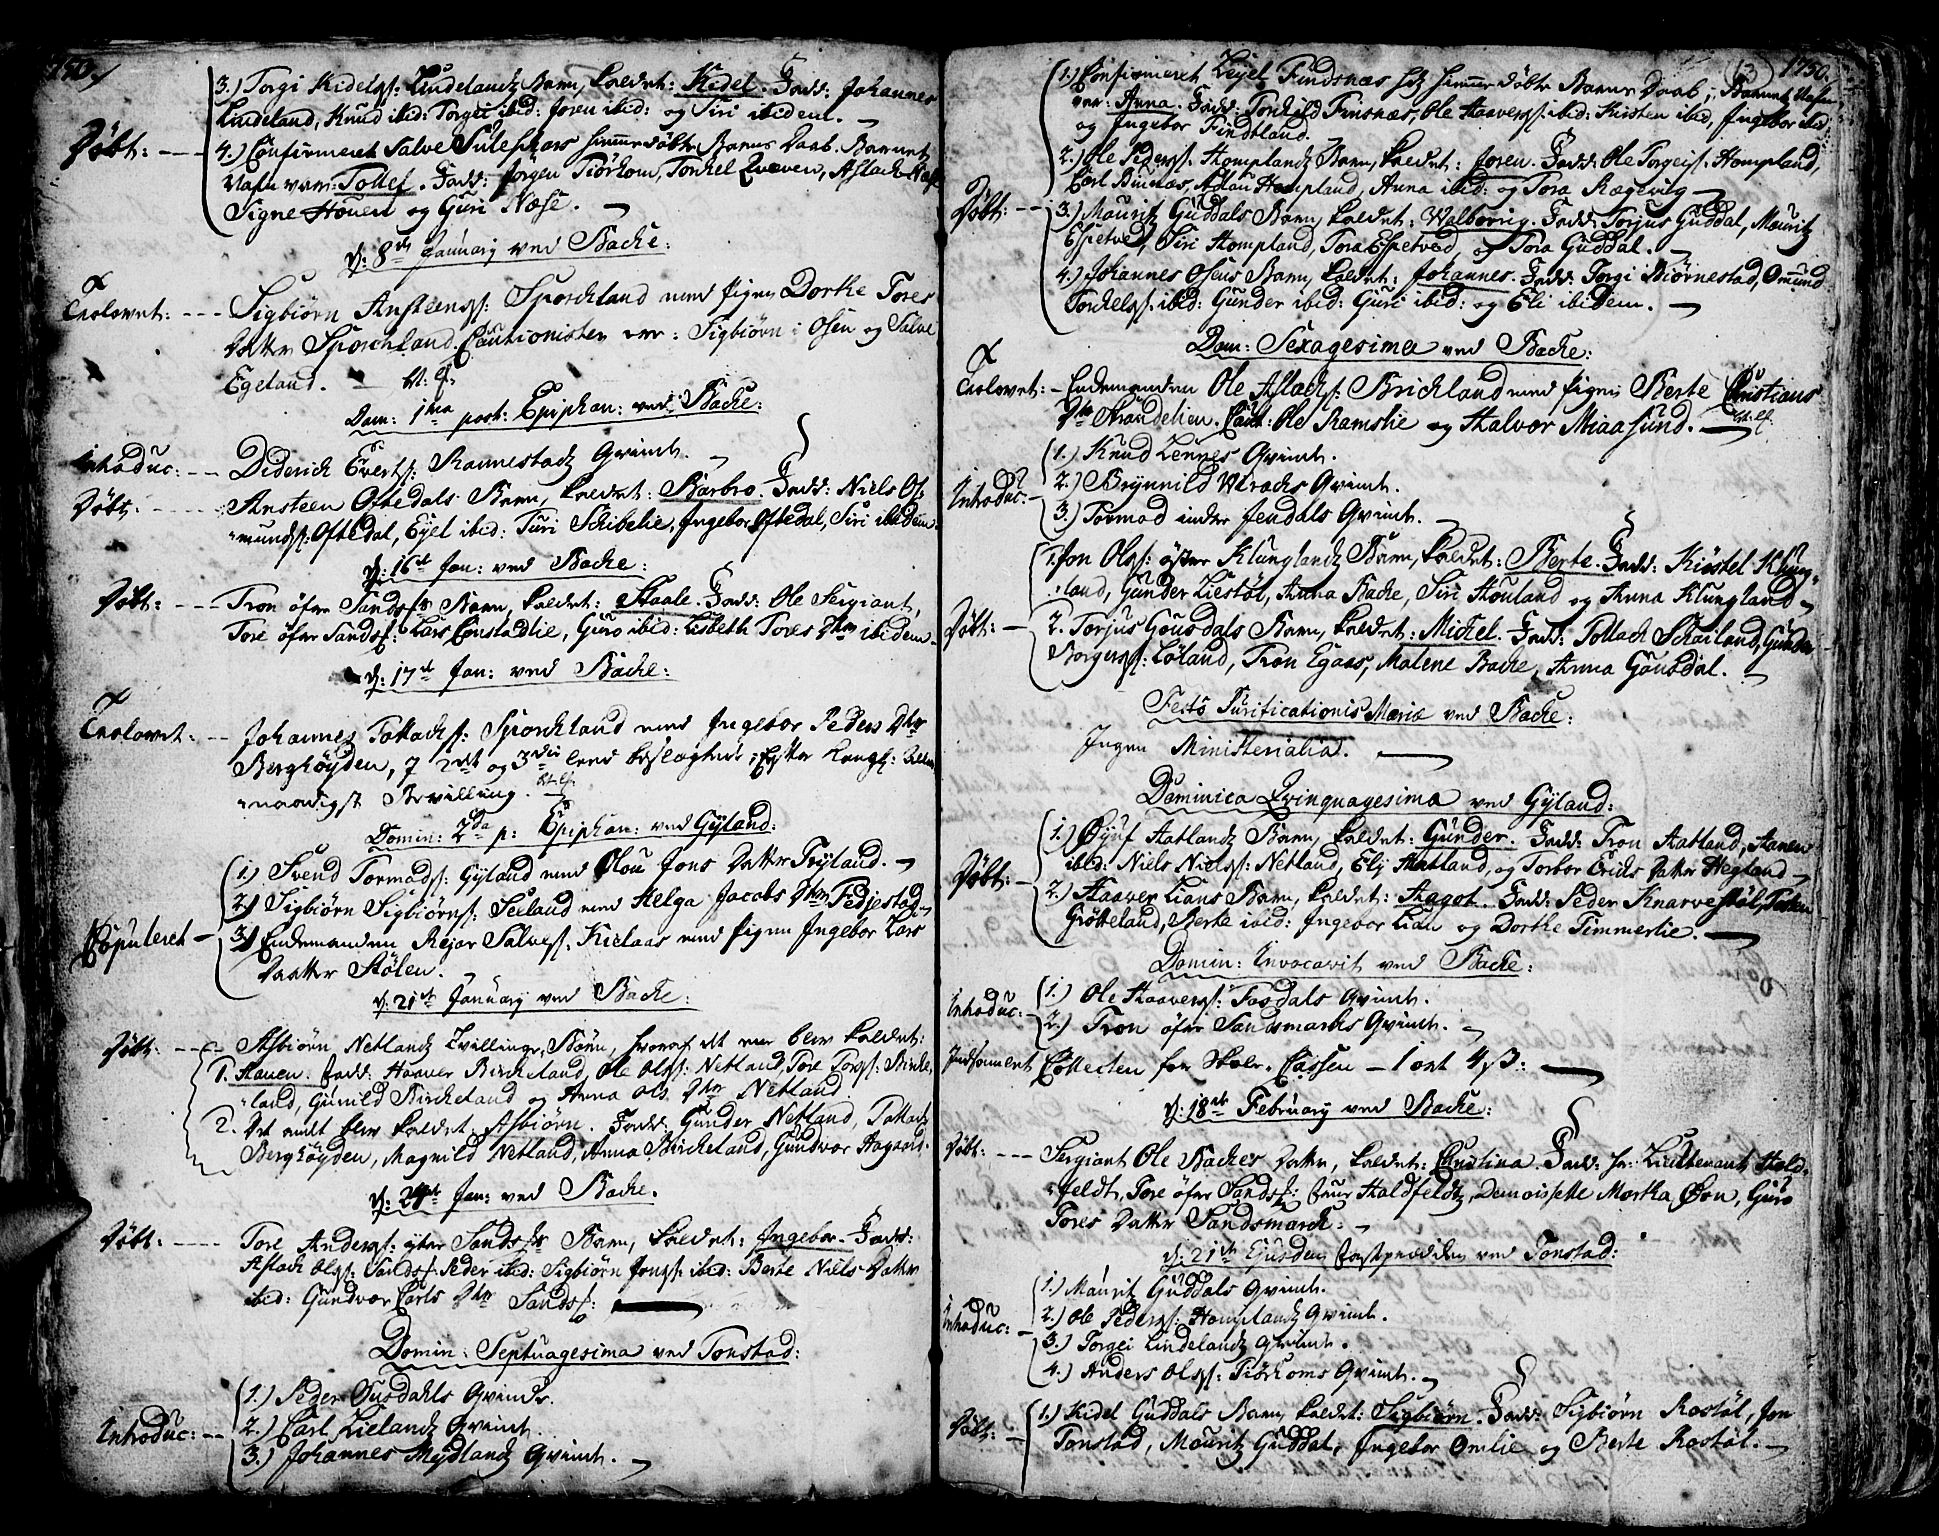 1750.
3.) Torgi Kidelss: Lindelands Barn, kaldet: Kidel. Fadd: Johannes
Lindeland, Knud ibid: Torgei ibid: Joren ibid: og Siri ibidem.
Døbt: 4.) Confirmeret Salve Sulespars hiemmedøbte Barns Daab. Barnets
Nafn var: Tollef. Fadd: Jørgen Tiørhom, Tonkel Qvæven, Aslach Næse
Signe Houen og Guri Næse.
d: 8de January ved Backe:
Trolovet: Sigbiørn Ansteenss: Sporchland med Pigen Dorthe Tores
Datter Sporchland. Cautionister ere: Sigbiørn i Osen og Salve
Egeland.
Dom: 1ma post: Epiphan: ved Backe:
Introduc: Diderich Evertss: Rannestads Qvinde.
Døbt: Ansteen Oftedals Barn, kaldet: Barbro. Fadd: Niels Os-
mundss: Oftedal, Eyel ibid: Turi Schibelie, Ingebor Oftedal, Siri ibidem
d: 16de Jan: ved Backe:
Døbt: Tron øfre Sandss Barn, kaldet: Staale. Fadd: Ole Sergiant,
Tore øfre Sandss: Lars Constadlie, Guro ibid: Lisbeth Tores Dtr ibidem
d: 17de Jan: ved Backe:
Trolovet: Johannes Tollachss: Sporchland med Ingebor Peders Dtr
Berghøyden, J 2det og 3die leed beslægtede, efter Kongl: Aller-
naadigst Bevilling.
Domin: 2da p: Epiphan: ved Gyland:
1.) Svend Tormodss: Gyland med Olou Jons Datter Tryland.
2.) Sigbiørn Sigbiørnss: Seeland med Helga Jacobs Dtr Fedjestad
Copuleret 3.) Enkemanden Rejar Salvess: Kielaas med Pigen Ingebor Lars
Datter Stølen.
d: 21de January ved Backe:
Døbt: Asbiørn Netlands Tvillinge-Børn, hvoraf det eene blev kaldet:
1. Hanen: Fadd: Haaver Birkeland, Ole Olss: Netland, Tore Torss: Birke-
land, Gunild Birkeland og Anna Ols Dtr Netland
2. Det andet blev kaldet Asbiørn. Fadd: Gunder Netland, Tollach
Berghøyden, Magnild Netland, Anna Birkeland, Gundvor Aagaard.
d: 24de Jan: ved Backe.
Døbt: Tore Anderss: øfre Sandss Barn, kaldet: Ingebor. Fadd:
Aslach Olss: Sandss: Peder ibid: Sigbiørn Jonss: ibid: Berte Niels Datter
ibid: Gundvor Carls Dtr Sandss:
Domin: Septuagesima ved Tonstad:
1.) Peder Ousdahls Qvinde.
2.) Carl Lielands Qvinde.
Introduc: 3.) Johannes Mydlands Qvinde.
(3) 1750.
1.) Confirmeret Lejel Findsnæs sets hiemmedøbte Barns Daab, Barnets Nafn
var: Anna. Fadd: Torkild Finsnæs, Ole Haaverss: ibid: Kristen ibid, Ingebor ibid:
og Ingebor Findsland.
2.) Ole Pederss: Homplands Barn, kaldet: Joren. Fadd: Ole Torgeiss: Hompland,
Carl Biunæs, Adlau Hompland, Anna ibid: og Tora Rægevig
Døbt: 3.) Mauritz Guddals Barn, kaldet: Walborrig. Fadd: Torjus Guddal, Mauritz
Espetved, Siri Hompland, Tora Espetved, og Tora Guddal.
4.) Johannes Osens Barn, kaldet: Johannes. Fadd: Torgi Biørnestad, Omund
Torkelss: ibid: Gunder ibid: Guri ibid: og Eli ibidem.
Dom: Sexagesima ved Backe:
Trolovet: Enkemanden Ole Aslachss: Brickland med Pigen Berte Christians
Dtr Strandelien. Caut: Ole Ramslie og Halvor Miaasund.
1.) Knud Lennes Qvinde.
Introduc: 2.) Brynnild Wrachs Qvinde.
3.) Tormod under Jendals Qvinde.
1. Jon Olss: øfre Klunglands Barn, kaldet: Berte. Fadd: Kiøstel Klung-
land, Gunder Liestøl, Anna Backe, Siri Houland og Anna Klungland
Døbt: 2. Torjus Gousdals Barn, kaldet: Michel. Fadd: Tollach Schailand, Gunder
Borgerss: Løland, Tron Egaas, Malene Backe, Anna Gousdal.
Festo Purificationis Mariæ ved Backe:
Ingen Ministerialia.
Dominica Qvinquagesima ved Gyland:
1.) Øyuf Hatlands Barn, kaldet: Gunder. Fadd: Tron Hatland, Hanen
ibid: Niels Nielss: Netland, Eli Hatland, og Torbor Erichs Datter Hegland
Døbt: 2.) Haaver Lians Barn, kaldet: Aagot. Fadd: Peder Knarvestøl, Tarken
Grøtteland, Berte ibid: Ingebor Lian og Dorthe Timmerlie.
Domin: Invocavit ved Backe:
Introduc: 1.) Ole Haaverss: Tosdals Qvinde.
2.) Tron øfre Sandsmarks Qvinde.
Indsamlet Collecten for Skole-Cassen 1 ort 4 β:
d: 18de February ved Backe:
Døbt: Sergiant Ole Backes Datter, kaldet: Christina. Fadd: Hr: Lieutenant Hold-
feldt, Tore øfre Sandss: Frue Haldfeldts, Demoiselle Martha Øvn, Guro
Tores Datter Sandsmarck:
d: 21de Ejusdem Fasteprædiken ved Tonstad:
1.) Mauritz Guddals Qvinde.
2.) Ole Pederss: Homplands Qvinde.
Introduc: 3.) Torgei Lindelands Qvinde.
4.) Anders Olss: Tiørhoms Qvinde.
Døbt: 1.) Kidel Guddals Barn, kaldet: Sigbiørn. Fadd: Sigbiørn Rostøl, Jon
Tonstad, Mauritz Guddal, Ingebor Omlie og Berte Rostøl.